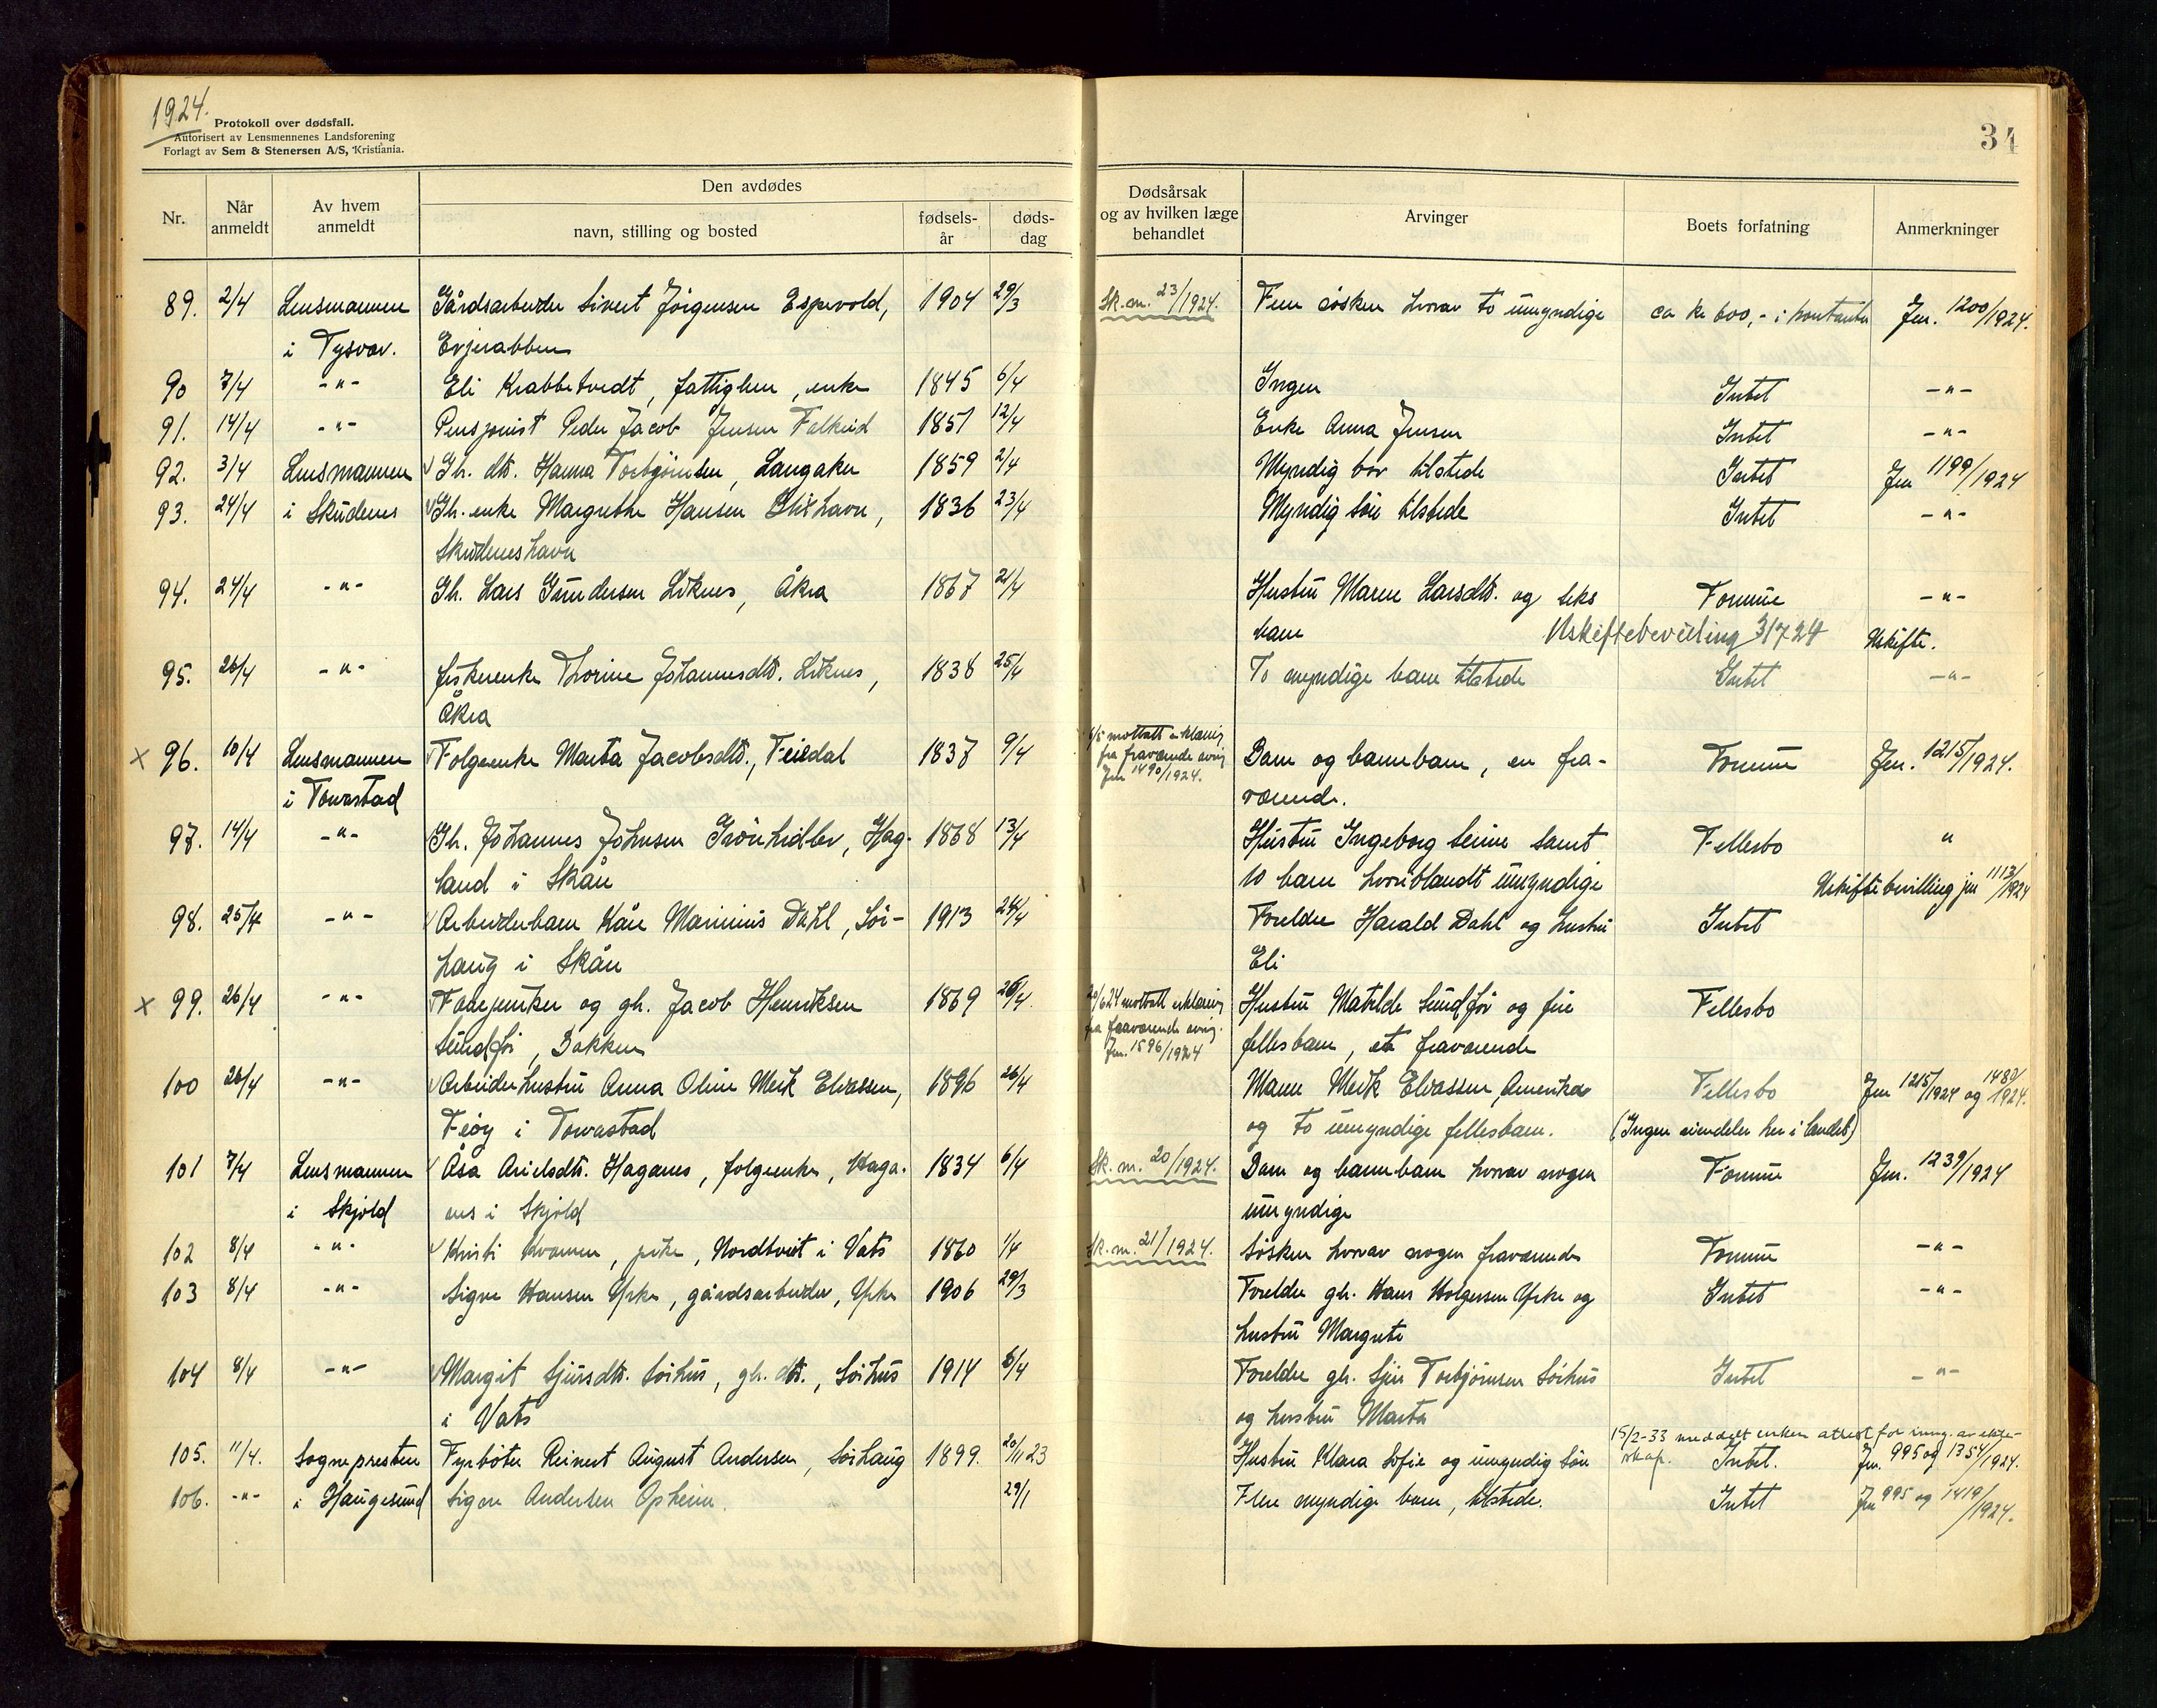 1924.
Protokoll over dødsfall.
Autorisert av Lensmennenes Landsforening
Forlagt av Sem & Stenersen A/S, Kristiania.
34
Nr. Når anmeldt Av hvem anmeldt Den avdødes navn, stilling og bosted fødselsår dødsdag Dødsårsak og av hvilken læge behandlet Arvinger Boets forfatning Anmerkninger
89. 2/4 Lensmannen Gårdsarbeider Sivert Jörgensen Espevold, 1904 29/3 Sk.m. 23/1924. Fem søsken hvorav to umyndige ca kr 600,- i kontanter Jnr. 1200/1924.
i Tysvær.
90 7/4 -"- Eli Krabbetvedt, fattiglem, enke 1845 6/4 Ingen Intet -"-
91. 14/4 -"- Pensjonist Peder Jacob Jensen Falkeid 1851 12/4 Enke Anna Jensen Intet -"-
92. 3/4 Lensmannen Gh. dtr. Hanna Torbjörnsen, Langåker 1859 2/4 Myndig bror tilstede Intet Jnr 1199/1924
93. 24/4 i Skudenes Gh. enke Margrethe Hansen 1836 23/4 Myndig sön tilstede Intet -"-
Skudeneshavn
94. 24/4 -"- Gh. Lars Gundersen Liknes, Åkra 1867 21/4 Hustru Maren Larsdtr. og seks Formue -"-
barn Uskiftebevilling 31724 Uskifte.
95. 26/4 -"- fiskerenke Thorine Johannesdtr. Liknes, 1838 25/4 To myndige barn tilstede Intet -"-
Åkra
x 96. 10/4 Lensmannen Folgeenke Marta Jacobsdtr., Feisdal 1837 9/4 6/5 mottatt erklæring Barn og barnebarn, en fra- Formue Jnr. 1215/1924.
fra fraværende arving
Jnr 1490/1924.
i Torvastad værende.
97. 14/4 -"- Gh. Johannes Johnsen Grönhidler, Hag- 1868 13/4 Hustru Ingeborg Serine samt Fellesbo "
land i Skåre 10 barn hvoriblandt umyndige Uskiftebevilling jnr 1113/1924
98. 25/4 -"- Arbeiderbarn Kåre Marinius Dahl, Sör- 1913 24/4 Foreldre Harald Dahl og hustru Intet
haug i Skåre Eli
x 99. 26/4 -"- og gh. Jacob Henriksen 1869 26/4. 20/6 24 mottatt erklæring Hustru Matilde Sundför og fire Fellesbo
fra fraværende arving.
Jnr. 1596/1924
Sundför, Bakken fellesbarn, et fraværende
100 26/4 -"- Arbeiderhustru Anna Oline Meik Eliassen, 1896 26/4 Mann Meik Eliassen, Amerika Fellesbo Jnr 1215/1924 og 1480/1924.
Feöy i Torvastad og to umyndige fellesbarn. (Ingen eiendeler her i landet)
101 7/4 Lensmannen Åsa Arielsdtr. Haganes, folgeenke, Haga- 1834 6/4 Sk.m. 20/1924. Barn og barnebarn hvorav nogen Formue Jnr. 1239/1924
i Skjold nes i Skjold umyndige
102 8/4 -"- Kristi Kvamen, pike, Nordtveit i Vats 1860 1/4 Sk.m. 21/1924. Søsken hvorav nogen fraværende Formue -"-
103 8/4 -"- Sigve Hansen Yrke, gårdsarbeider, Yrke 1906 29/3 Foreldre gh. Hans Holgersen Yrke og Intet -"-
hustru Margrete
104 8/4 -"- Margit Sjursdtr. Sörhus, gh. dtr., Sörhus 1914 6/4 Foreldre gh. Sjur Torbjörnsen Sörhus Intet -"-
i Vats og hustru Marta
15/2-33 meddelt enken attest for inng. av ekte-
skap.
105. 11/4. Sognepresten Fyrböter Reinert August Andersen, Sörhaug 1899. 20/11 23 Hustru Klara Sofie og umyndig sön Intet. Jnr. 995 og 1354/1924.
106. -"- i Haugesund Signe Andersen Opheim. 29/1 Flere myndige barn, tilstede. Intet Jnr 995 og 1419/1924.